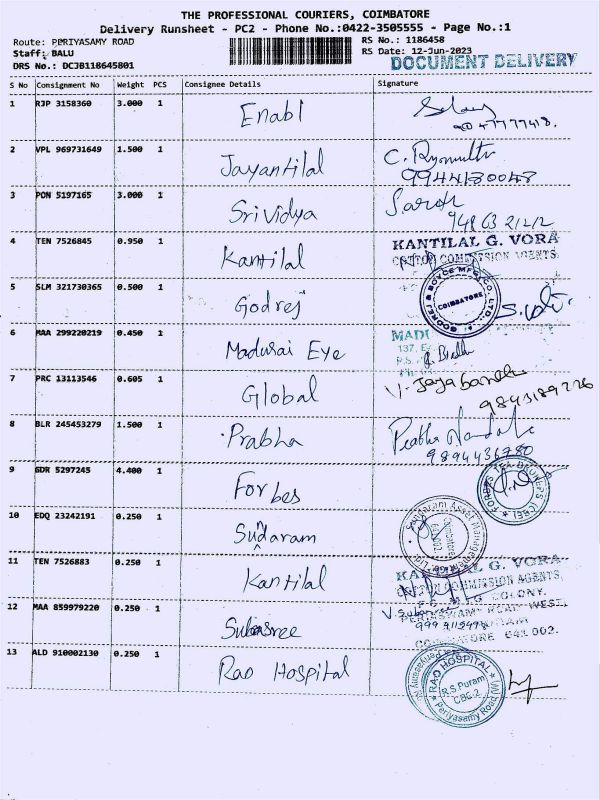 THE PROFESSIONAL COURIERS, COIMBATORE
Delivery Runsheet - PC2 - Phone No.:0422-3505555 - Page No.:1
Route: PERIYASAMY ROAD
RS No.: 1186458
Staff: BALU
RS Date: 12-Jun-2023
DRS No.: DCJB118645801
DOCUMENT DELIVERY
S No Consignment No Weight PCS Consignee Details Signature
1 RJP 3158360 3.000 1 Enabl
2 VPL 969731649 1.500 1 Jayantilal
9944180048
3 PON 5197165 3.000 1 Srividya
94863 21212
4 TEN 7526845 0.950 1 Kantilal KANTILAL G. VORA
COTTON COMMISSION AGENTS.
5 SLM 321730365 0.500 1 Godrej GODREJ & BOYCE MFG. CO. LTD. COIMBATORE
6 MAA 299220219 0.450 1 Madurai Eye
7 PRC 13113546 0.605 1 Global
9843189226
8 BLR 245453279 1.500 1 Prabha Prabha
9894436780
9 GDR 5297245 4.400 1 Forbes
10 EDQ 23242191 0.250 1 Sundaram
11 TEN 7526883 0.250 1 Kantilal KANTILAL G. VORA
COTTON COMMISSION AGENTS,
COLONY,
12 MAA 859979220 0.250 1 Subasree
COIMBATORE 641 002.
13 ALD 910002130 0.250 1 Rao Hospital RAO HOSPITAL R.S.Puram CBE-2 Periyasamy Road